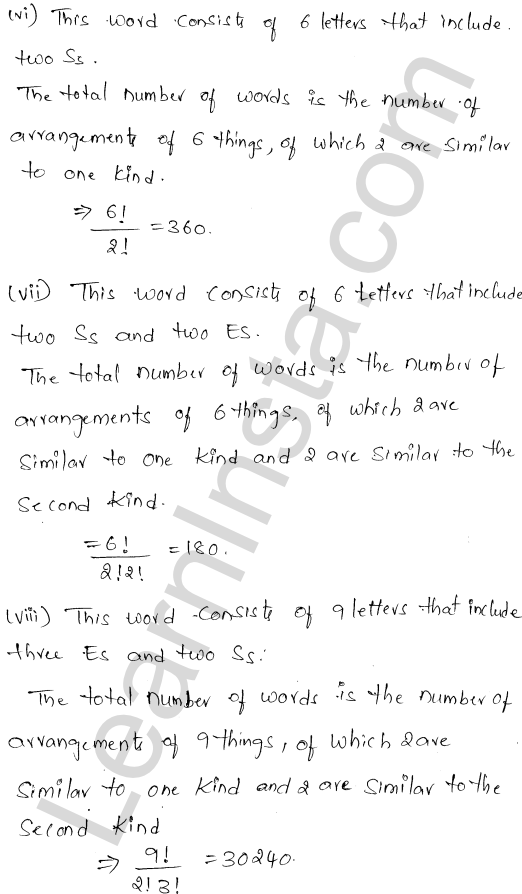 (vi) This word consists of 6 letters that include.
two Ss.
The total number of words is the number of
arrangements of 6 things, of which 2 are similar
to one kind.
⇒ 6!/2! = 360.
(vii) This word consists of 6 letters that include
two Ss and two Es.
The total number of words is the number of
arrangements of 6 things, of which 2 are
similar to one kind and 2 are similar to the
second kind.
= 6!/2!2! = 180.
(viii) This word consists of 9 letters that include
three Es and two Ss:
The total number of words is the number of
arrangements of 9 things, of which 2 are
similar to one kind and 2 are similar to the
second kind
⇒ 9!/2!3! = 30240.
LearnInsta.com